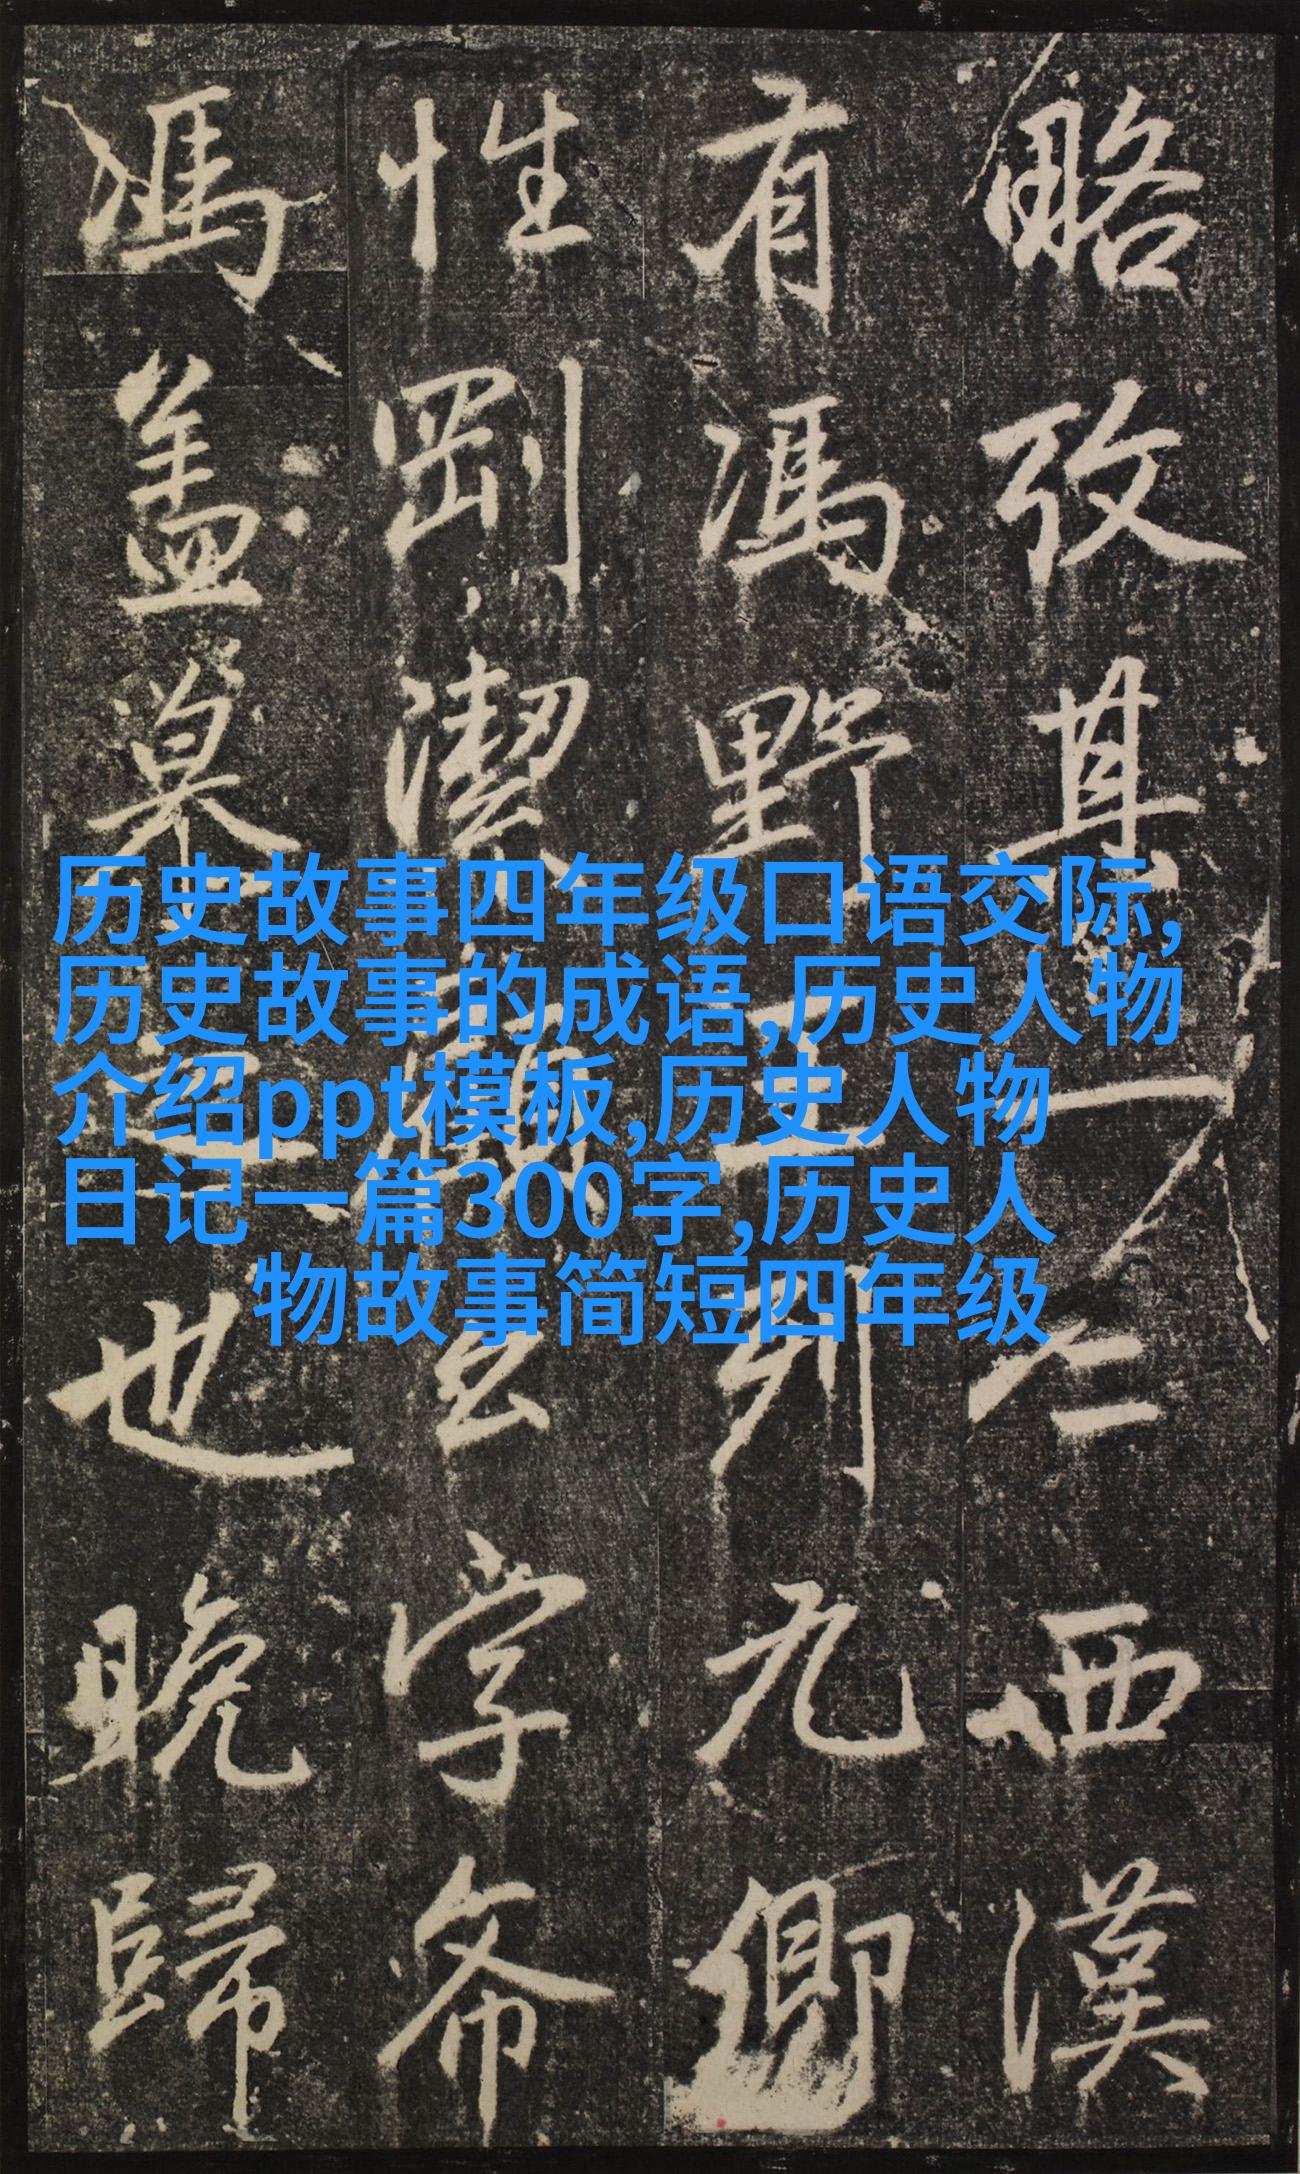 略攷其人二西漢
有馮野王列九卿
性剛潔字希
馮盖慕之也晚歸
历史故事四年级口语交际,
历史故事的成语,历史人物
介绍ppt模板,历史人物
日记一篇300字,历史人
物故事简短四年级